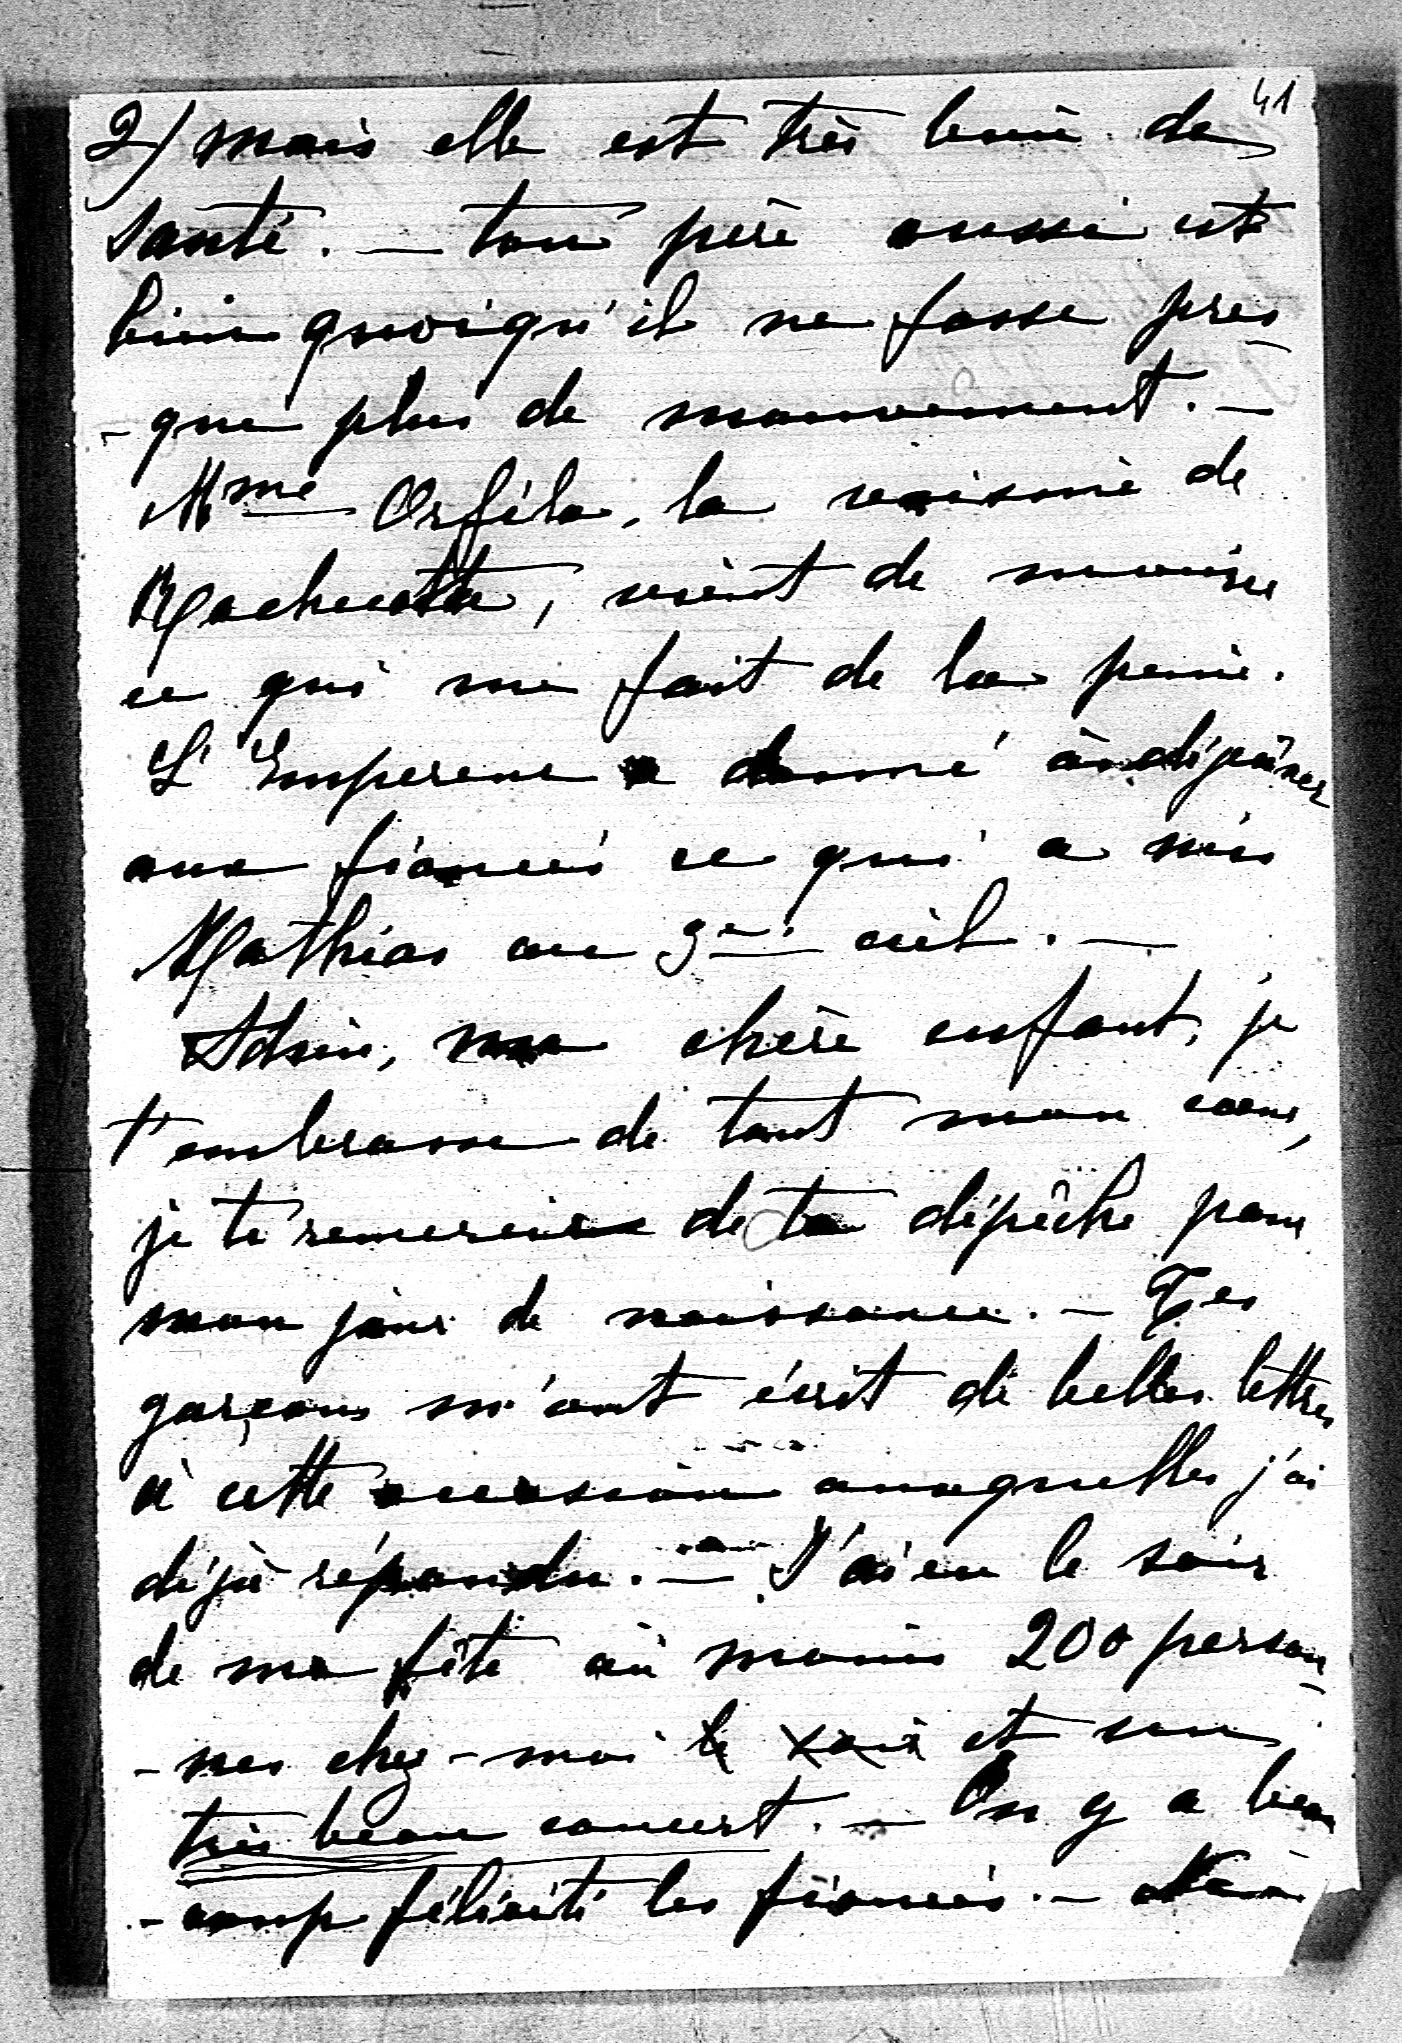 41
2) mais elle est très bien de
santé. — ton père aussi est
bien quoiqu'il ne fasse pres
- que plus de mouvement. —
Mme Orfila, la voisine de
vient de mourir
ce qui me fait de la peine.
L'Empereur a donné à déjeûner
aux fiancés ce qui a mis
Mathias au 3me ciel. —
Adieu, ma chère enfant, je
t'embrasse de tout mon coeur,
je te remercie de ta dépêche pour
mon jour de naissance. — Tes
garçons m'ont écrit de belles lettres
à cette occasion auxquelles j'ai
déjà répondu. — J'ai eu le soir
de ma fête au moins 200 person
- nes chez-moi le soir et un
très beau concert. — On y a beau
- coup félicité les fiancés. —